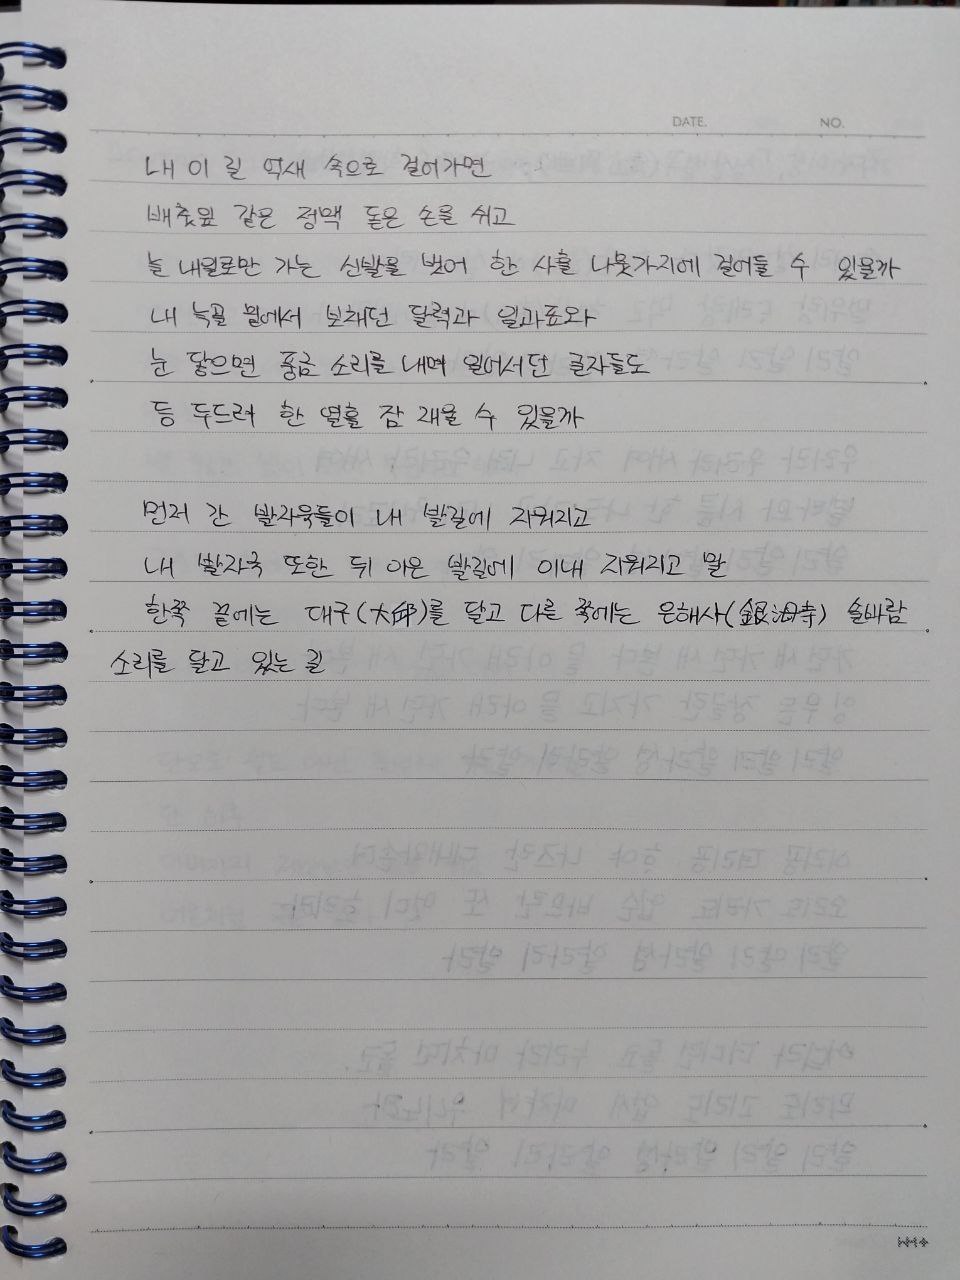 DATE. NO.
내 이 길 억새 속으로 걸어가면
배춧잎 같은 정맥 돋은 손을 쉬고
늘 내일로만 가는 신발을 벗어 한 사흘 나뭇가지에 걸어둘 수 있을까
내 늑골 밑에서 보채던 달력과 일과표와
눈 닿으면 풍금 소리를 내며 일어서던 글자들도
등 두드려 한 열흘 잠 재울 수 있을까
먼저 간 발자욱들이 내 발길에 지워지고
내 발자국 또한 뒤 이은 발길에 이내 지워지고 말
한쪽 끝에는 대구(大邱)를 달고 다른 쪽에는 은해사(銀海寺) 솔바람
소리를 달고 있는 길